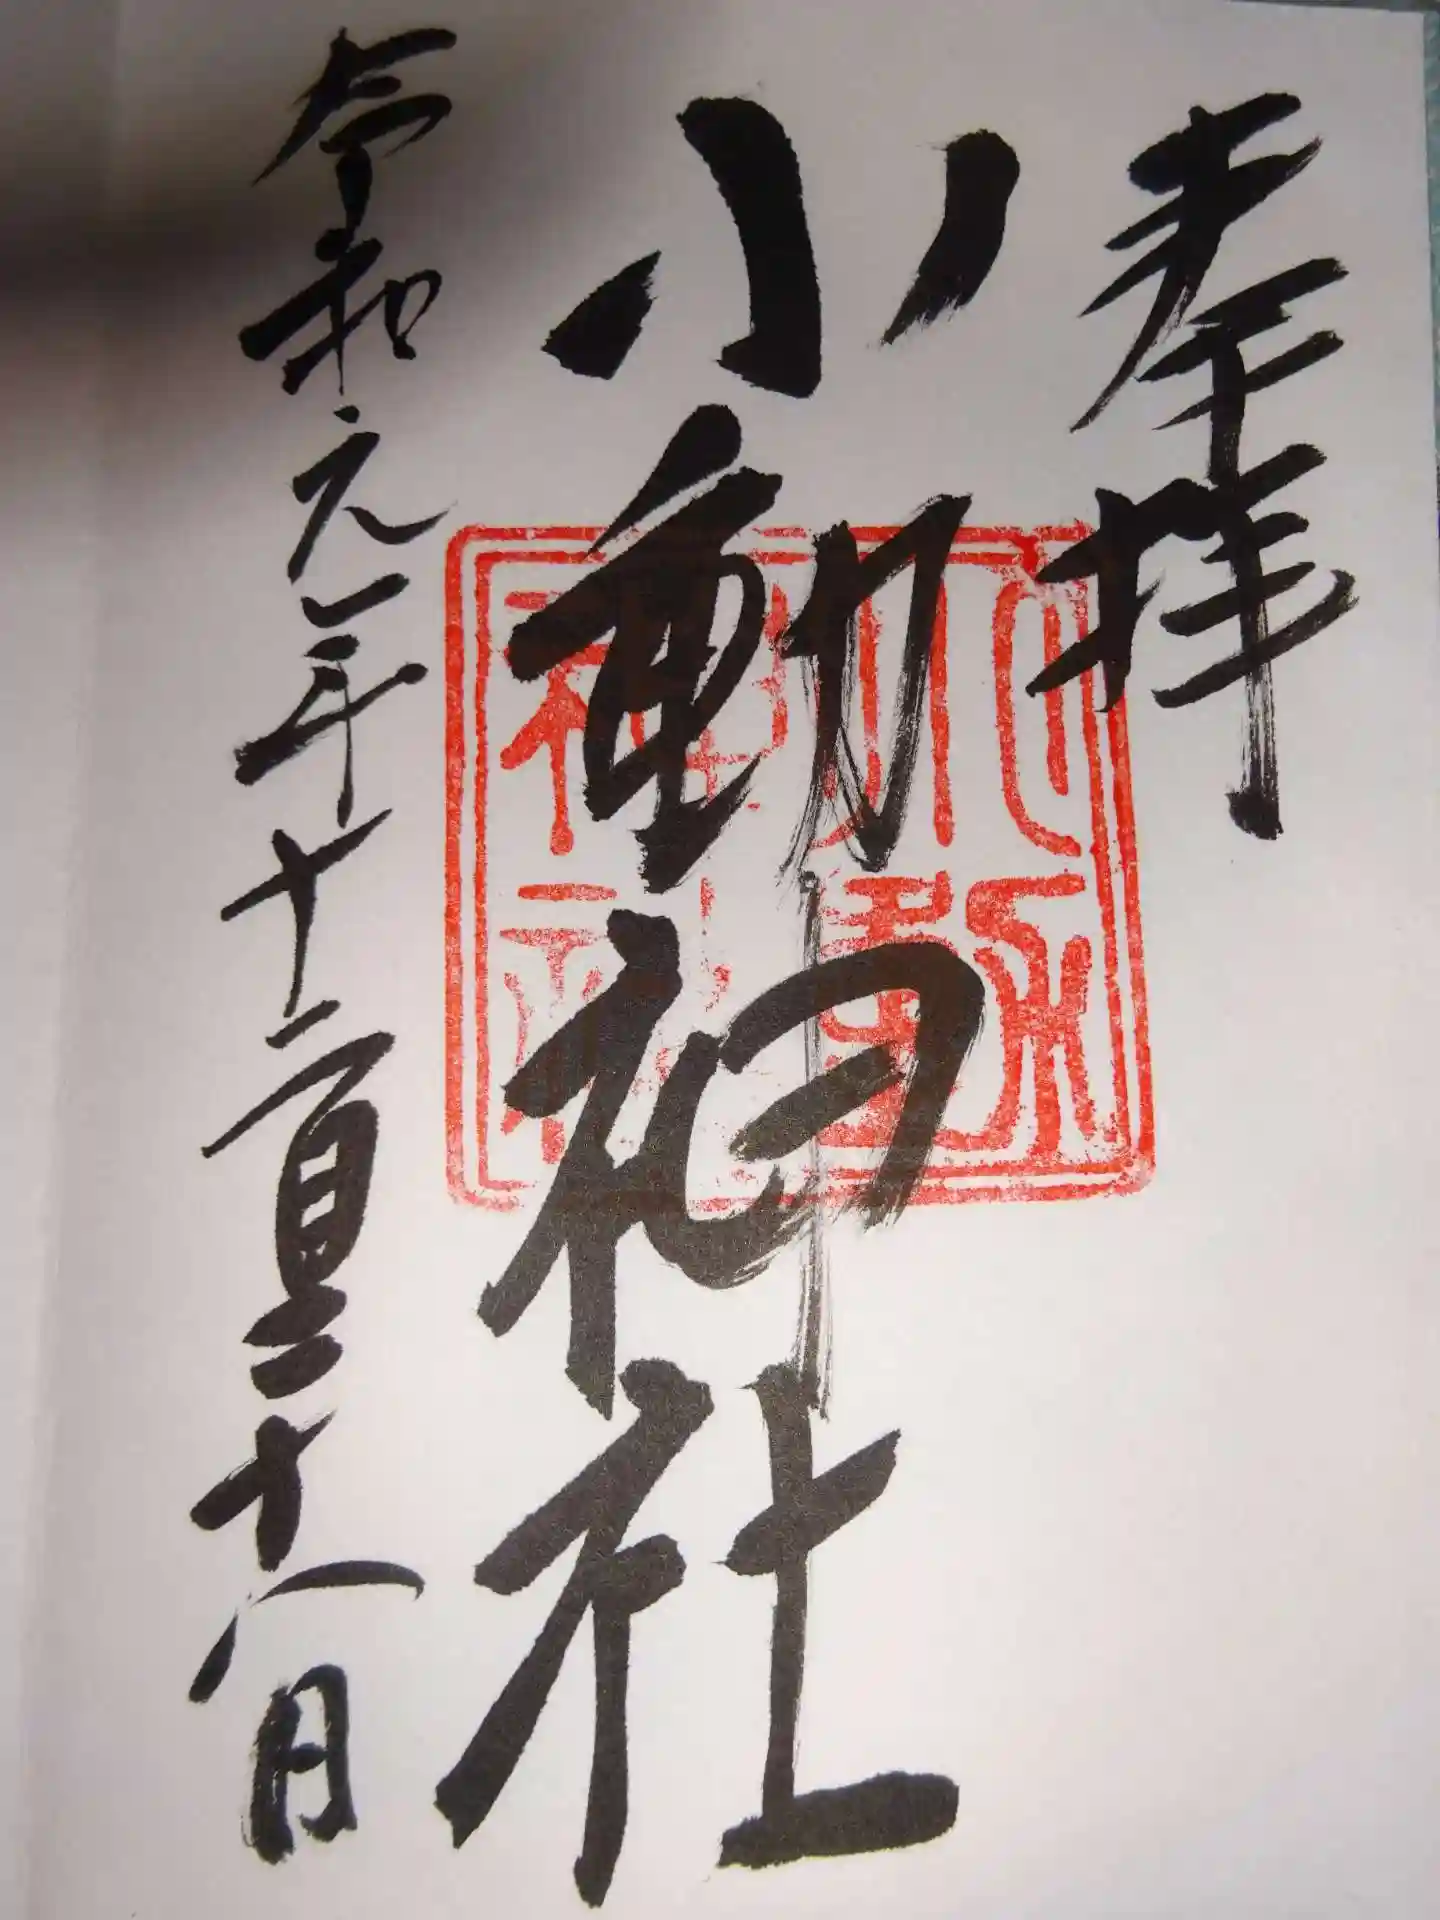 奉拝
小動神社
令和元年十二月二十八日
小動
神社